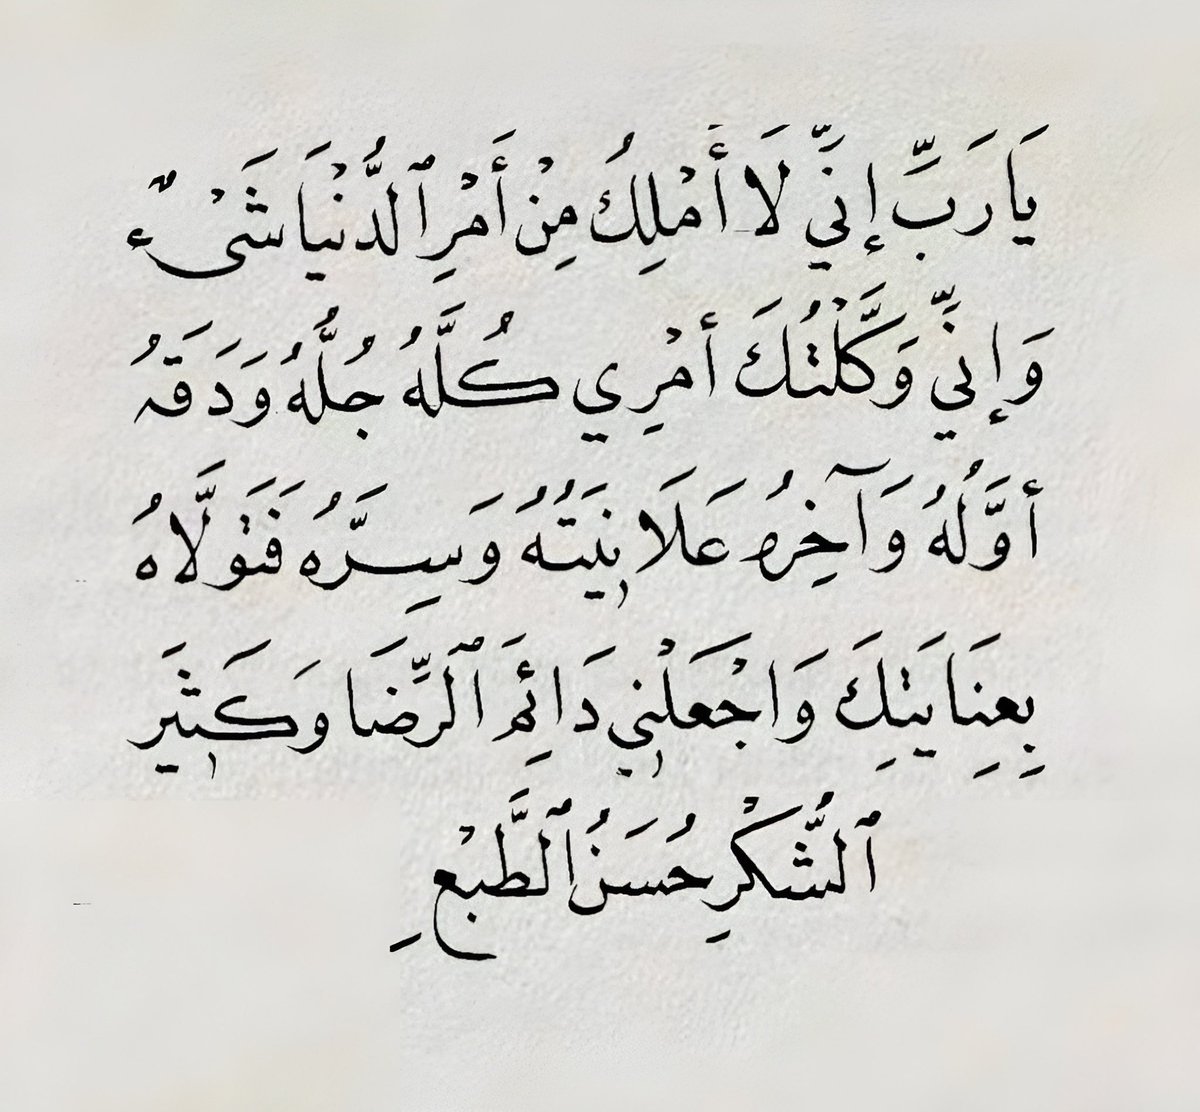 يَا رَبِّ إِنِّي لَا أَمْلِكُ مِنْ أَمْرِ ٱلدُّنْيَا شَىْءٌ
وَإِنِّي وَكَّلْتُكَ أَمْرِي كُلَّهُ جُلَّهُ وَدَقَهُ
أَوَّلُهُ وَآخِرُهُ عَلَانِيَتُهُ وَسِرَّهُ فَتَوَلَّاهُ
بِعِنَايَتِكَ وَاجْعَلْنِي دَائِمَ ٱلرِّضَا وَكَثِيرَ
ٱلشُّكْرِ حُسَنُ ٱلطَّبْعِ